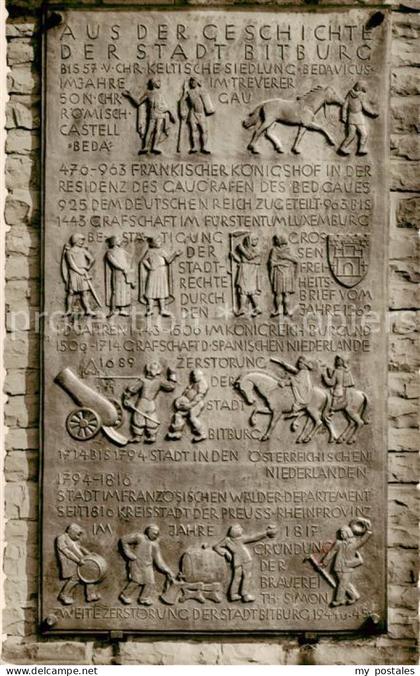 AUS DER GESCHICHTE
DER STADT BITBURG
BIS 57 V·CHR·KELTISCHE SIEDLUNG·BEDA VICUS·
IM JAHRE IM TREVERER
50 N·CHR GAU
RÖMISCH
CASTELL
BEDA
476-963 FRÄNKISCHER KÖNIGSHOF IN DER
RESIDENZ DES GAUGRAFEN DES BEDGAUES
925 DEM DEUTSCHEN REICH ZUGETEILT·963 BIS
1443 GRAFSCHAFT IM FÜRSTENTUM LUXEMBURG
BESTÄTIGUNG GROS
DER SEN
STADT- FREI
RECHTE HEITS
DURCH BRIEF VOM
DEN JAHRE 1262
JAHREN 1443-1506 IM KÖNIGREICH BURGUND
1506-1714 GRAFSCHAFT D·SPANISCHEN NIEDERLANDE
1689 ZERSTÖRUNG
DER
STADT
BITBURG
1714 BIS 1794 STADT IN DEN ÖSTERREICHISCHEN
NIEDERLANDEN
1794-1816
STADT IM FRANZÖSISCHEN WÄLDER-DEPARTEMENT
SEIT 1816 KREISSTADT DER PREUSS·RHEINPROVINZ
IM JAHRE 1817
GRÜNDUNG
DER
BRAUEREI
TH·SIMON
ZWEITE ZERSTÖRUNG DER STADT BITBURG 1944-45